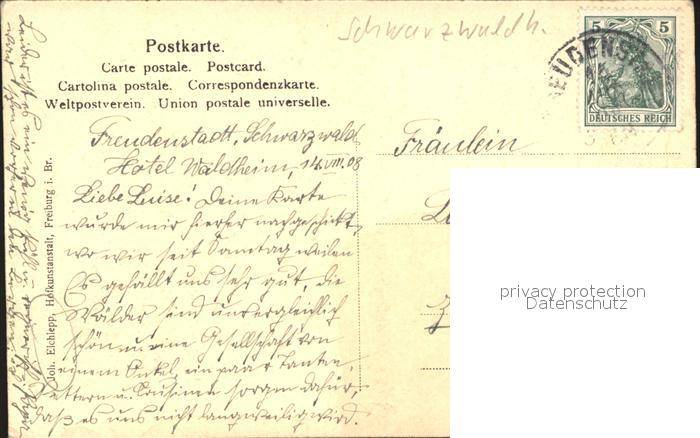 Schwarzwaldh.
Postkarte.
Carte postale. Postcard.
Cartolina postale. Correspondenzkarte.
Weltpostverein. Union postale universelle.
5 5
DEUTSCHES REICH
EUDENST
Freudenstadt, Schwarzwald
Hôtel Waldheim, 14.VIII.08
Liebe Luise! Deine Karte
wurde mir hierher nachgeschickt,
wo wir seit Samstag weilen
Es gefällt uns sehr gut, die
Wälder sind unvergleichlich
schön u. eine Gesellschaft von
einem Onkel, ein paar Tanten,
Vettern u. Cousinen sorgen dafür,
daß es uns nicht langweilig wird.
Joh. Elchlepp, Hofkunstanstalt, Freiburg i. Br.
Fräulein
privacy protection
Datenschutz